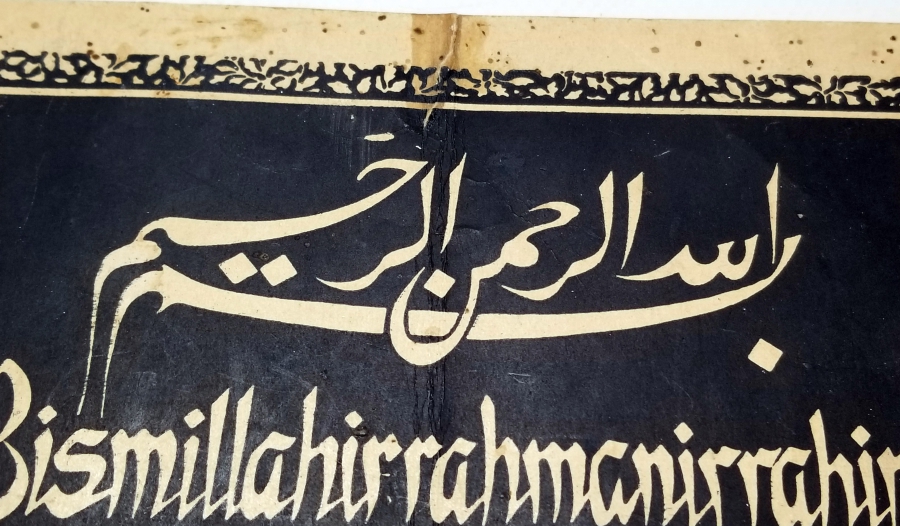 بسم الله الرحمن الرحيم
Bismillahirrahmanirrahim